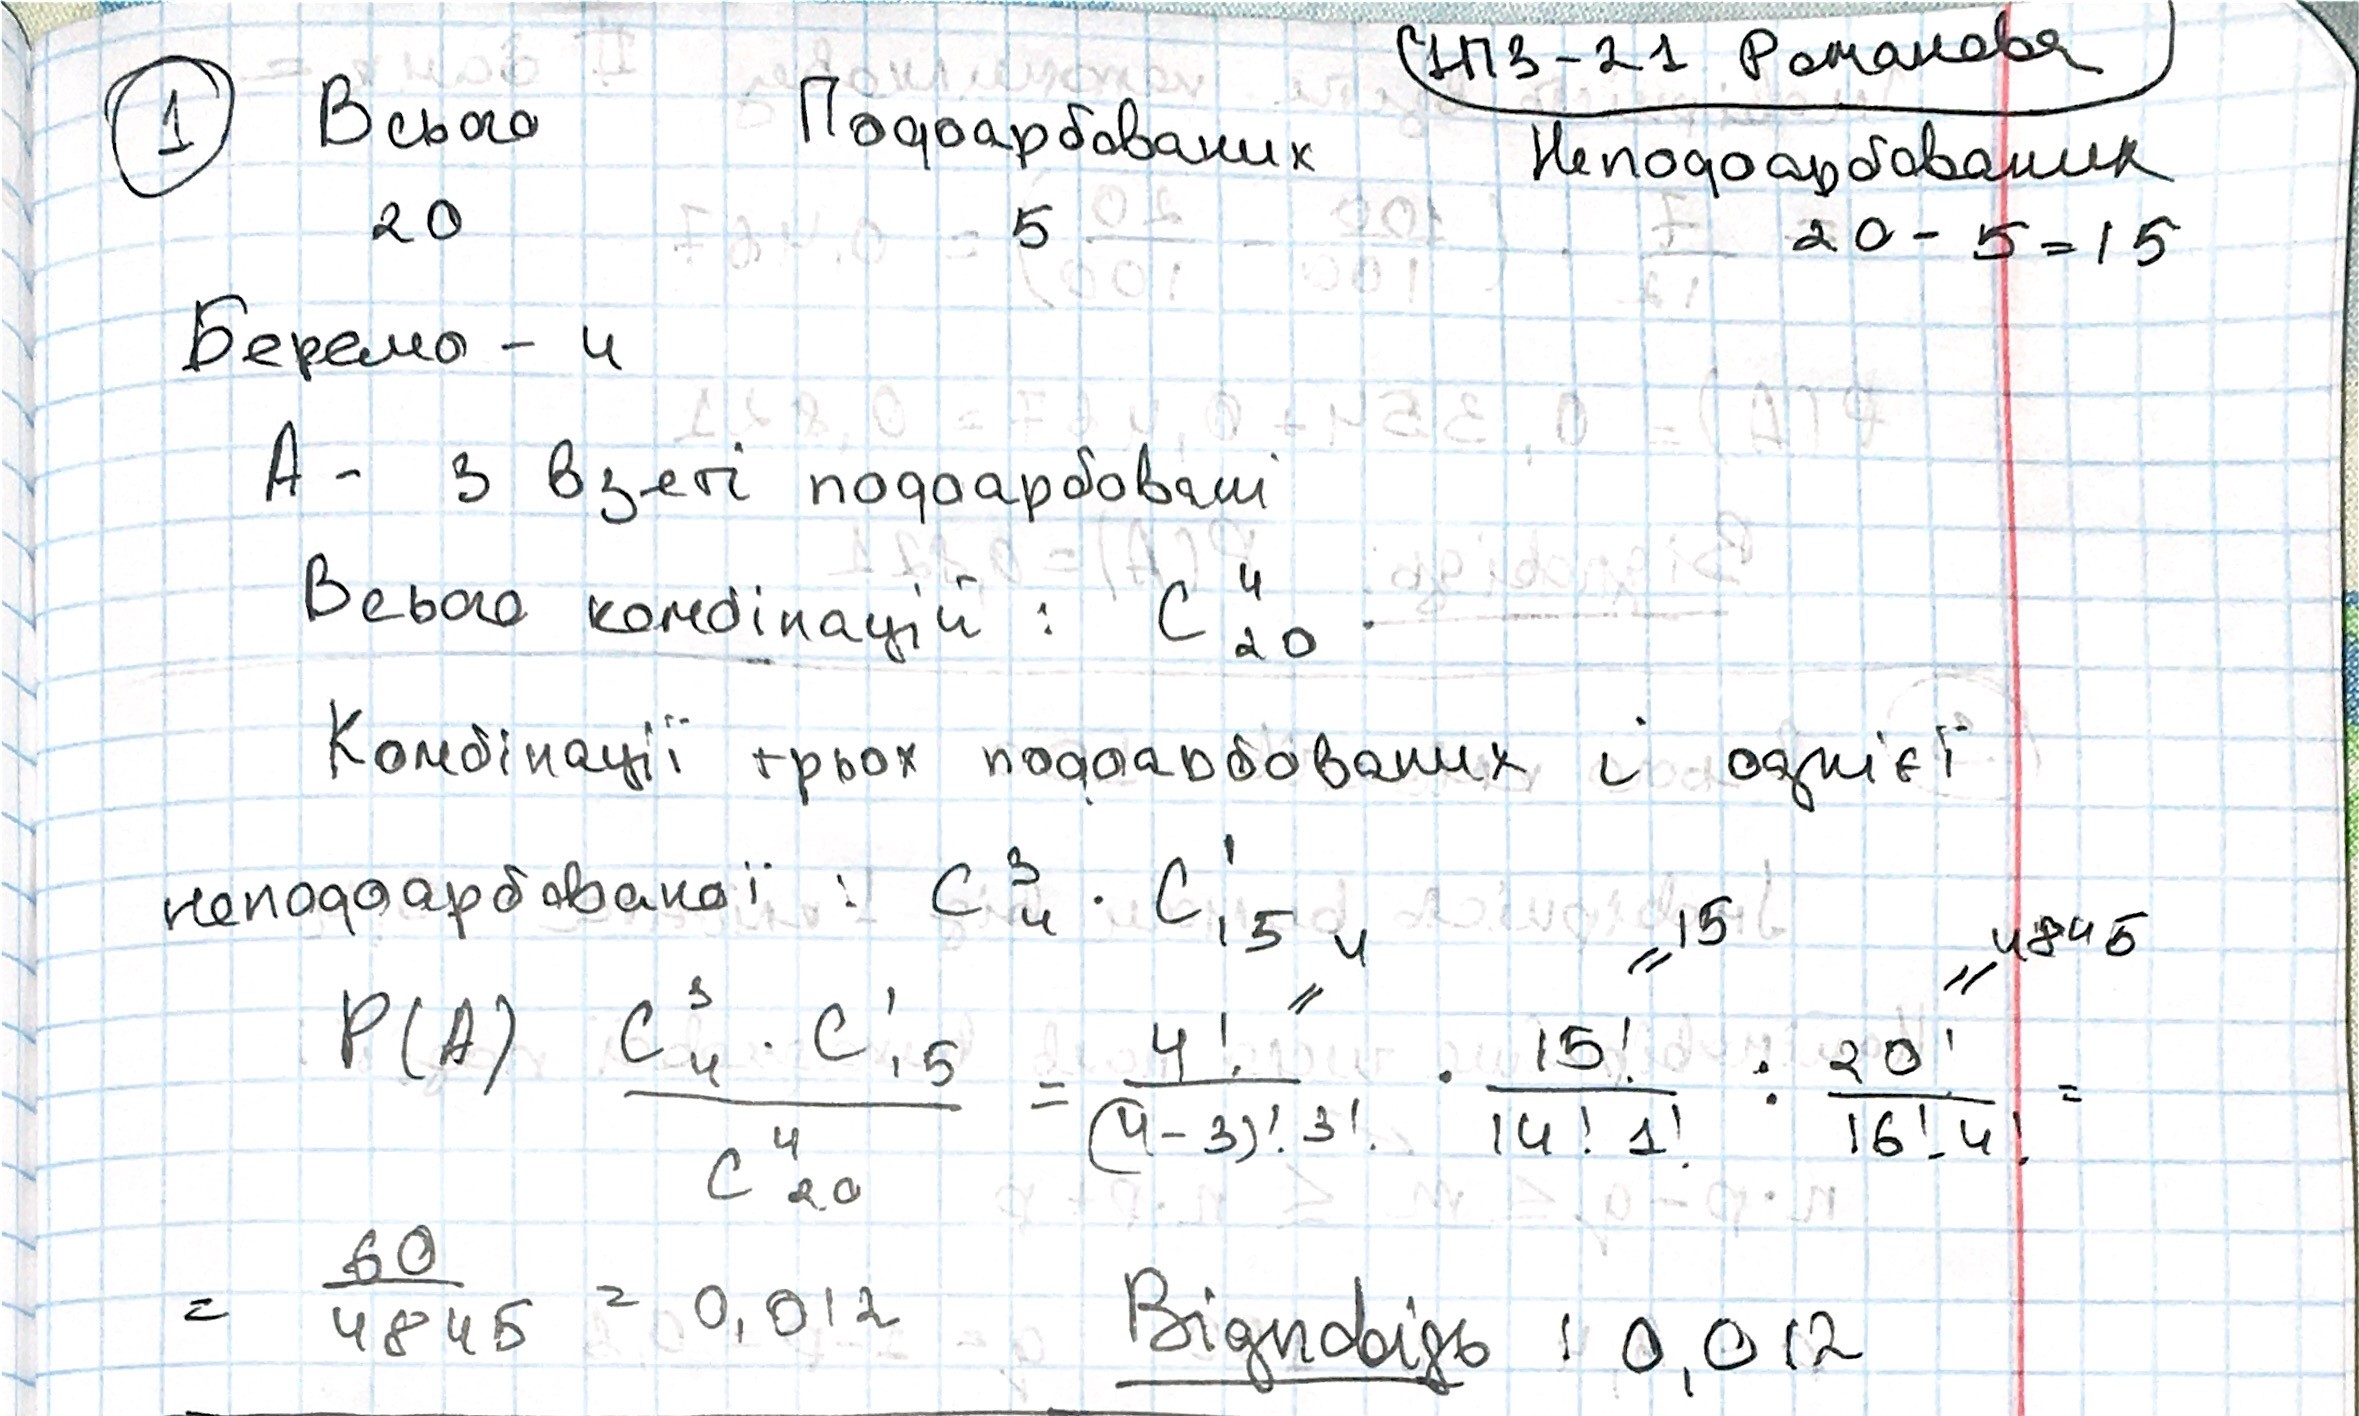 ІПЗ-21 Романова
1 Всього Подфарбованих Неподфарбованих
20 5 20 - 5 = 15
Беремо - 4
А - 3 взеті подфарбовані
Всього комбінацій : C 4 20 .
Комбінації трьох подфарбованих і однієї
неподфарбованої : C 3 4 · C 1 15
4 15 4845
P(A) C 3 4 · C 1 15 / C 4 20 = 4! / (4-3)! 3! · 15! / 14! 1! : 20! / 16! · 4! =
= 60 / 4845 = 0,012 Відповідь : 0,012